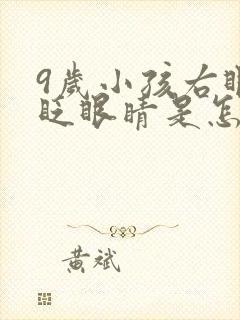 9岁小孩右眼
眨眼睛是怎
黄斌